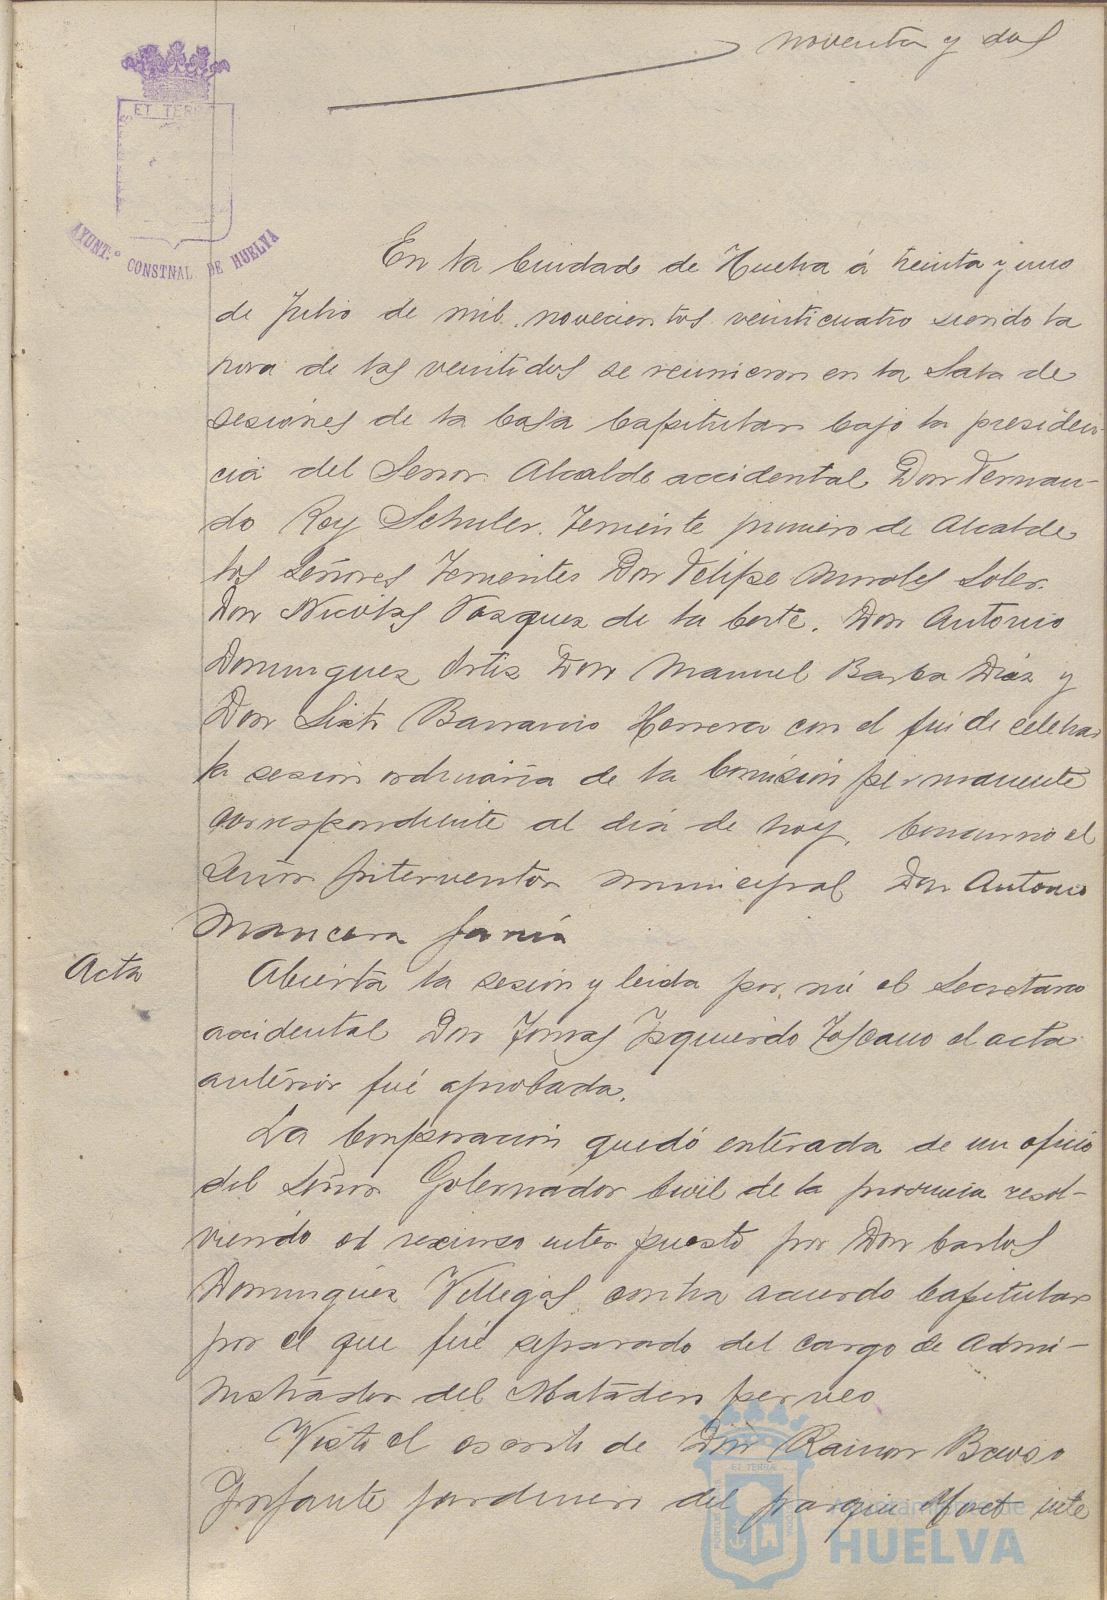 noventa y dos
ET TERRA
AYUNT.º CONSTNAL DE HUELVA
En la Ciudad de Huelva á treinta y uno
de Julio de mil novecientos veinticuatro siendo la
hora de las veintidos se reunieron en la Sala de
sesiones de la Casa Capitular bajo la presiden-
cia del Señor Alcalde accidental Don Fernan-
do Rey Schuler. Teniente primero de Alcalde
los Señores Tenientes Don Felipe Morales Soler.
Don Nicolas Vazquez de la Corte. Don Antonio
Dominguez Ortiz Don Manuel Barba Diaz y
Don Sixto Barranco Herrera con el fin de celebrar
la sesion ordinaria de la Comision permanente
correspondiente al dia de hoy. Concurrio el
Señor Interventor municipal Don Antonio
Mancera
Acta
Abierta la sesion y leida por mi el Secretario
accidental Don Tomas Izquierdo Toscano el acta
anterior fué aprobada.
La Corporacion quedó enterada de un oficio
del Señor Gobernador Civil de la provincia resol-
viendo el recurso interpuesto por Don Carlos
Dominguez Villegas contra acuerdo Capitular
por el que fué separado del cargo de Admi-
nistrador del Matadero
Visto el escrito de Don Ramon
Infante jardinero del parque Moret inte
Ayuntamiento de
HUELVA